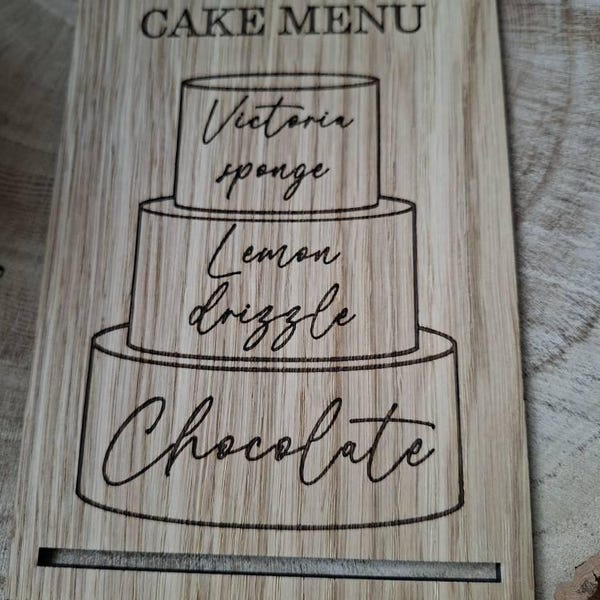 CAKE MENU
Victoria
sponge
Lemon
drizzle
Chocolate